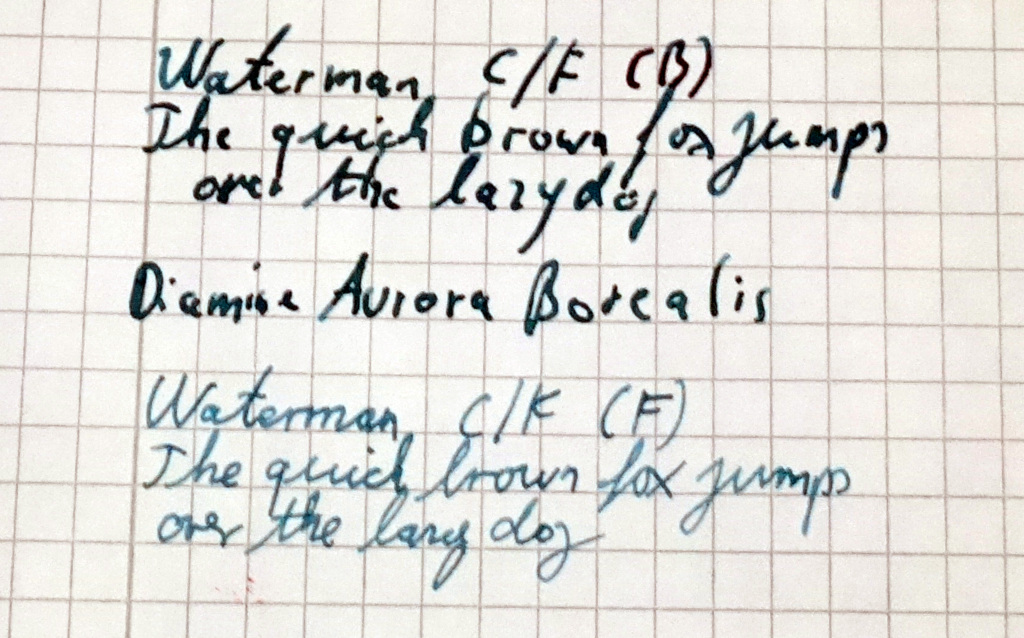 Waterman C/F (B)
The quick brown fox jumps
over the lazy dog
Diamine Aurora Borealis
Waterman C/F (F)
The quick brown fox jumps
over the lazy dog